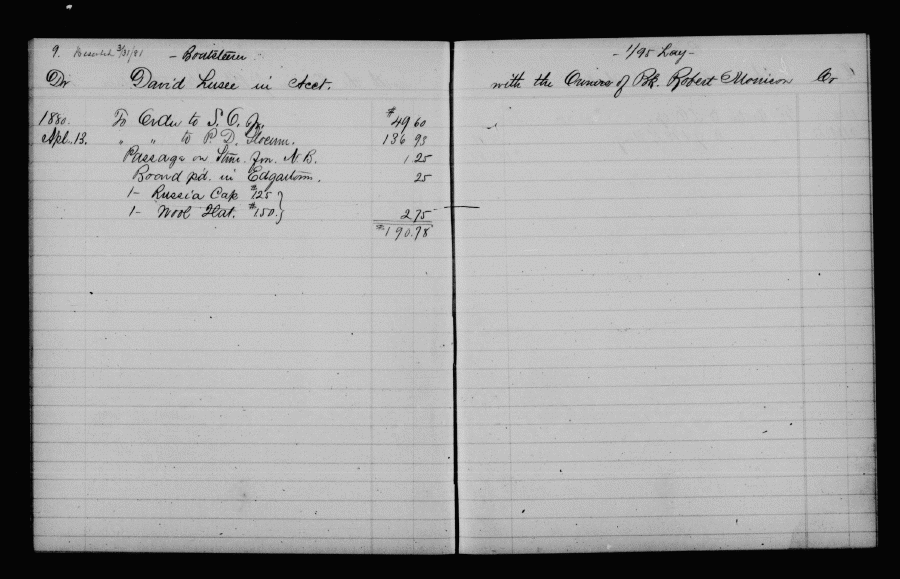 9. Deserted 3/31/81 – Boatsteerer
– 1/95 Lay –
Dr David Lusee in Acct. with the Owners of Bk. Robert Morrison Cr
1880. To Order to S. C. $49 60
Apl. 13. " " to P. D. Slocum. 136 93
Passage on Stmr. fm. N. B. 1 25
Board pd. in Edgartown. 25
1– Russia Cap $1 25 }
1– Wool Hat. $1 50 } 2 75
$190.78